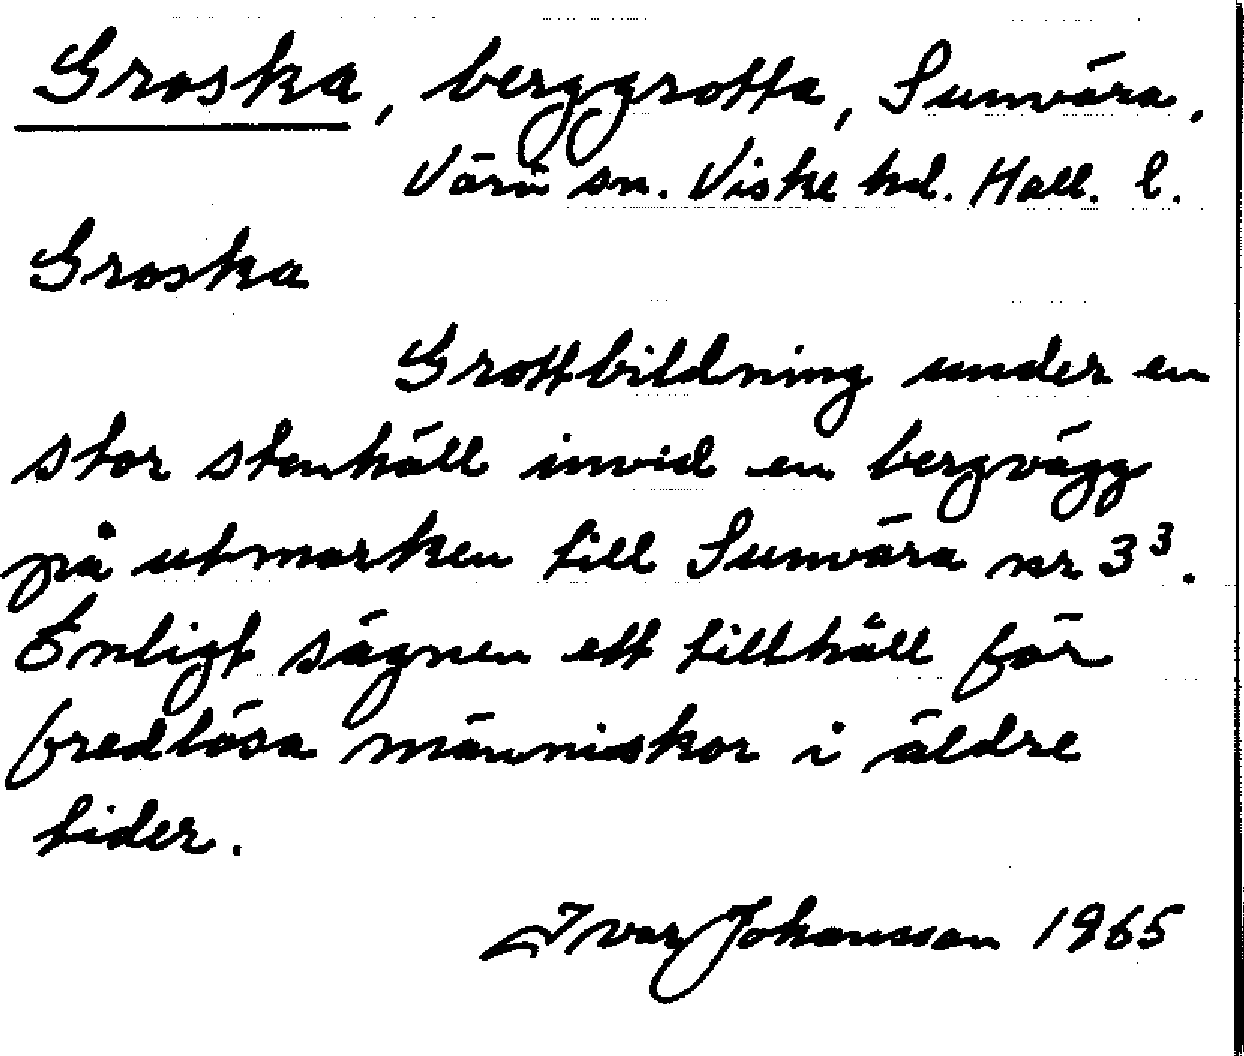 Groska, berggrotta, Sunvära.
Värö sn. Viske hd. Hall. l.
Groska
Grottbildning under en
stor stenhäll invid en bergvägg
på utmarken till Sunvära nr 3³.
Enligt sägnen ett tillhåll för
fredlösa människor i äldre
tider.
Ivar Johansson 1965